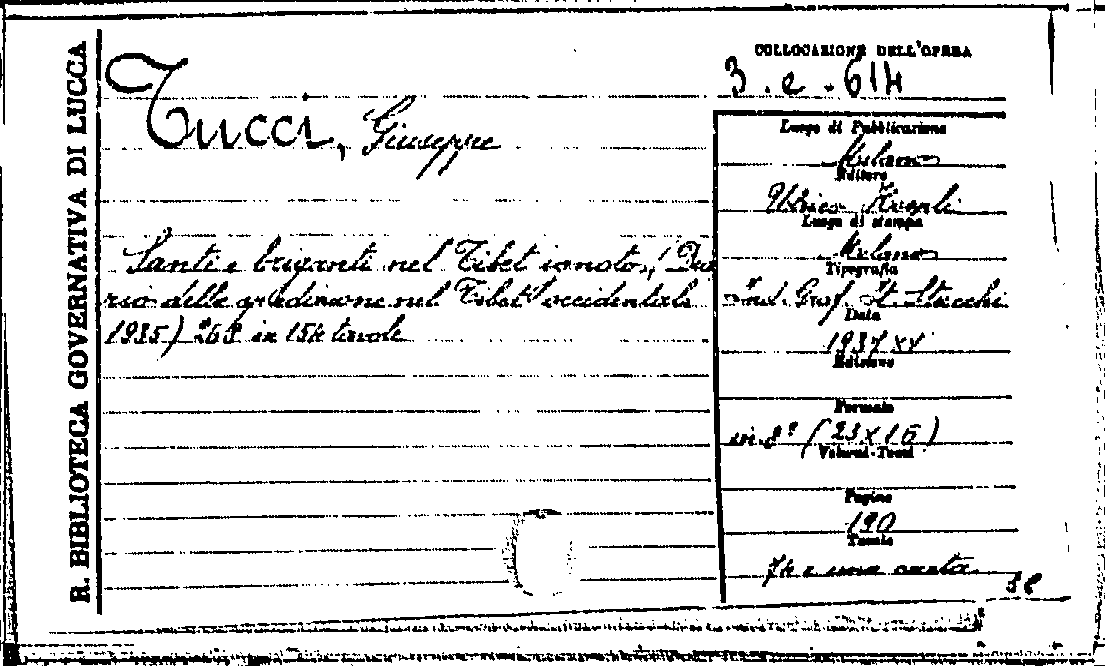 R. BIBLIOTECA GOVERNATIVA DI LUCCA
COLLOCAZIONE DELL'OPERA
3. e. 614
Tucci, Giuseppe
Santi e briganti nel Tibet ignoto, (Dia
rio della spedizione nel Tibet occidentale
1935) 263 in 154 tavole
Luogo di Pubblicazione
Milano
Editore
Ulrico Hoepli
Luogo di stampa
Milano
Tipografia
Ind. Graf. It. Stucchi
Data
1937 XV
Edizione
Formato
in 8° (23x16)
Volumi-Tomi
Pagine
190
Tavole
74 e una carta